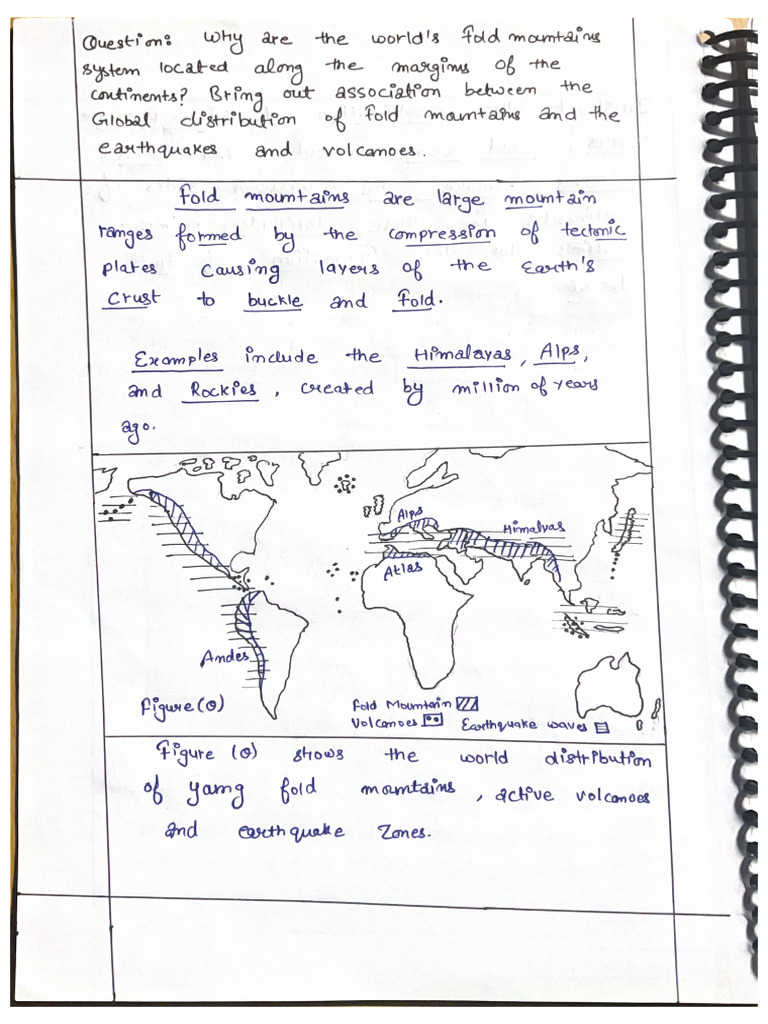 Question: Why are the world's fold mountains
system located along the margins of the
continents? Bring out association between the
Global distribution of fold mountains and the
earthquakes and volcanoes.
Fold mountains are large mountain
ranges formed by the compression of tectonic
plates causing layers of the Earth's
Crust to buckle and fold.
Examples include the Himalayas, Alps,
and Rockies, created by million of years
ago.
Alps
Himalyas
Atlas
Andes
Figure (0)
Fold Mountain
Volcanoes
Earthquake waves
Figure (0) shows the world distribution
of yang fold mountains, active volcanoes
and earthquake Zones.